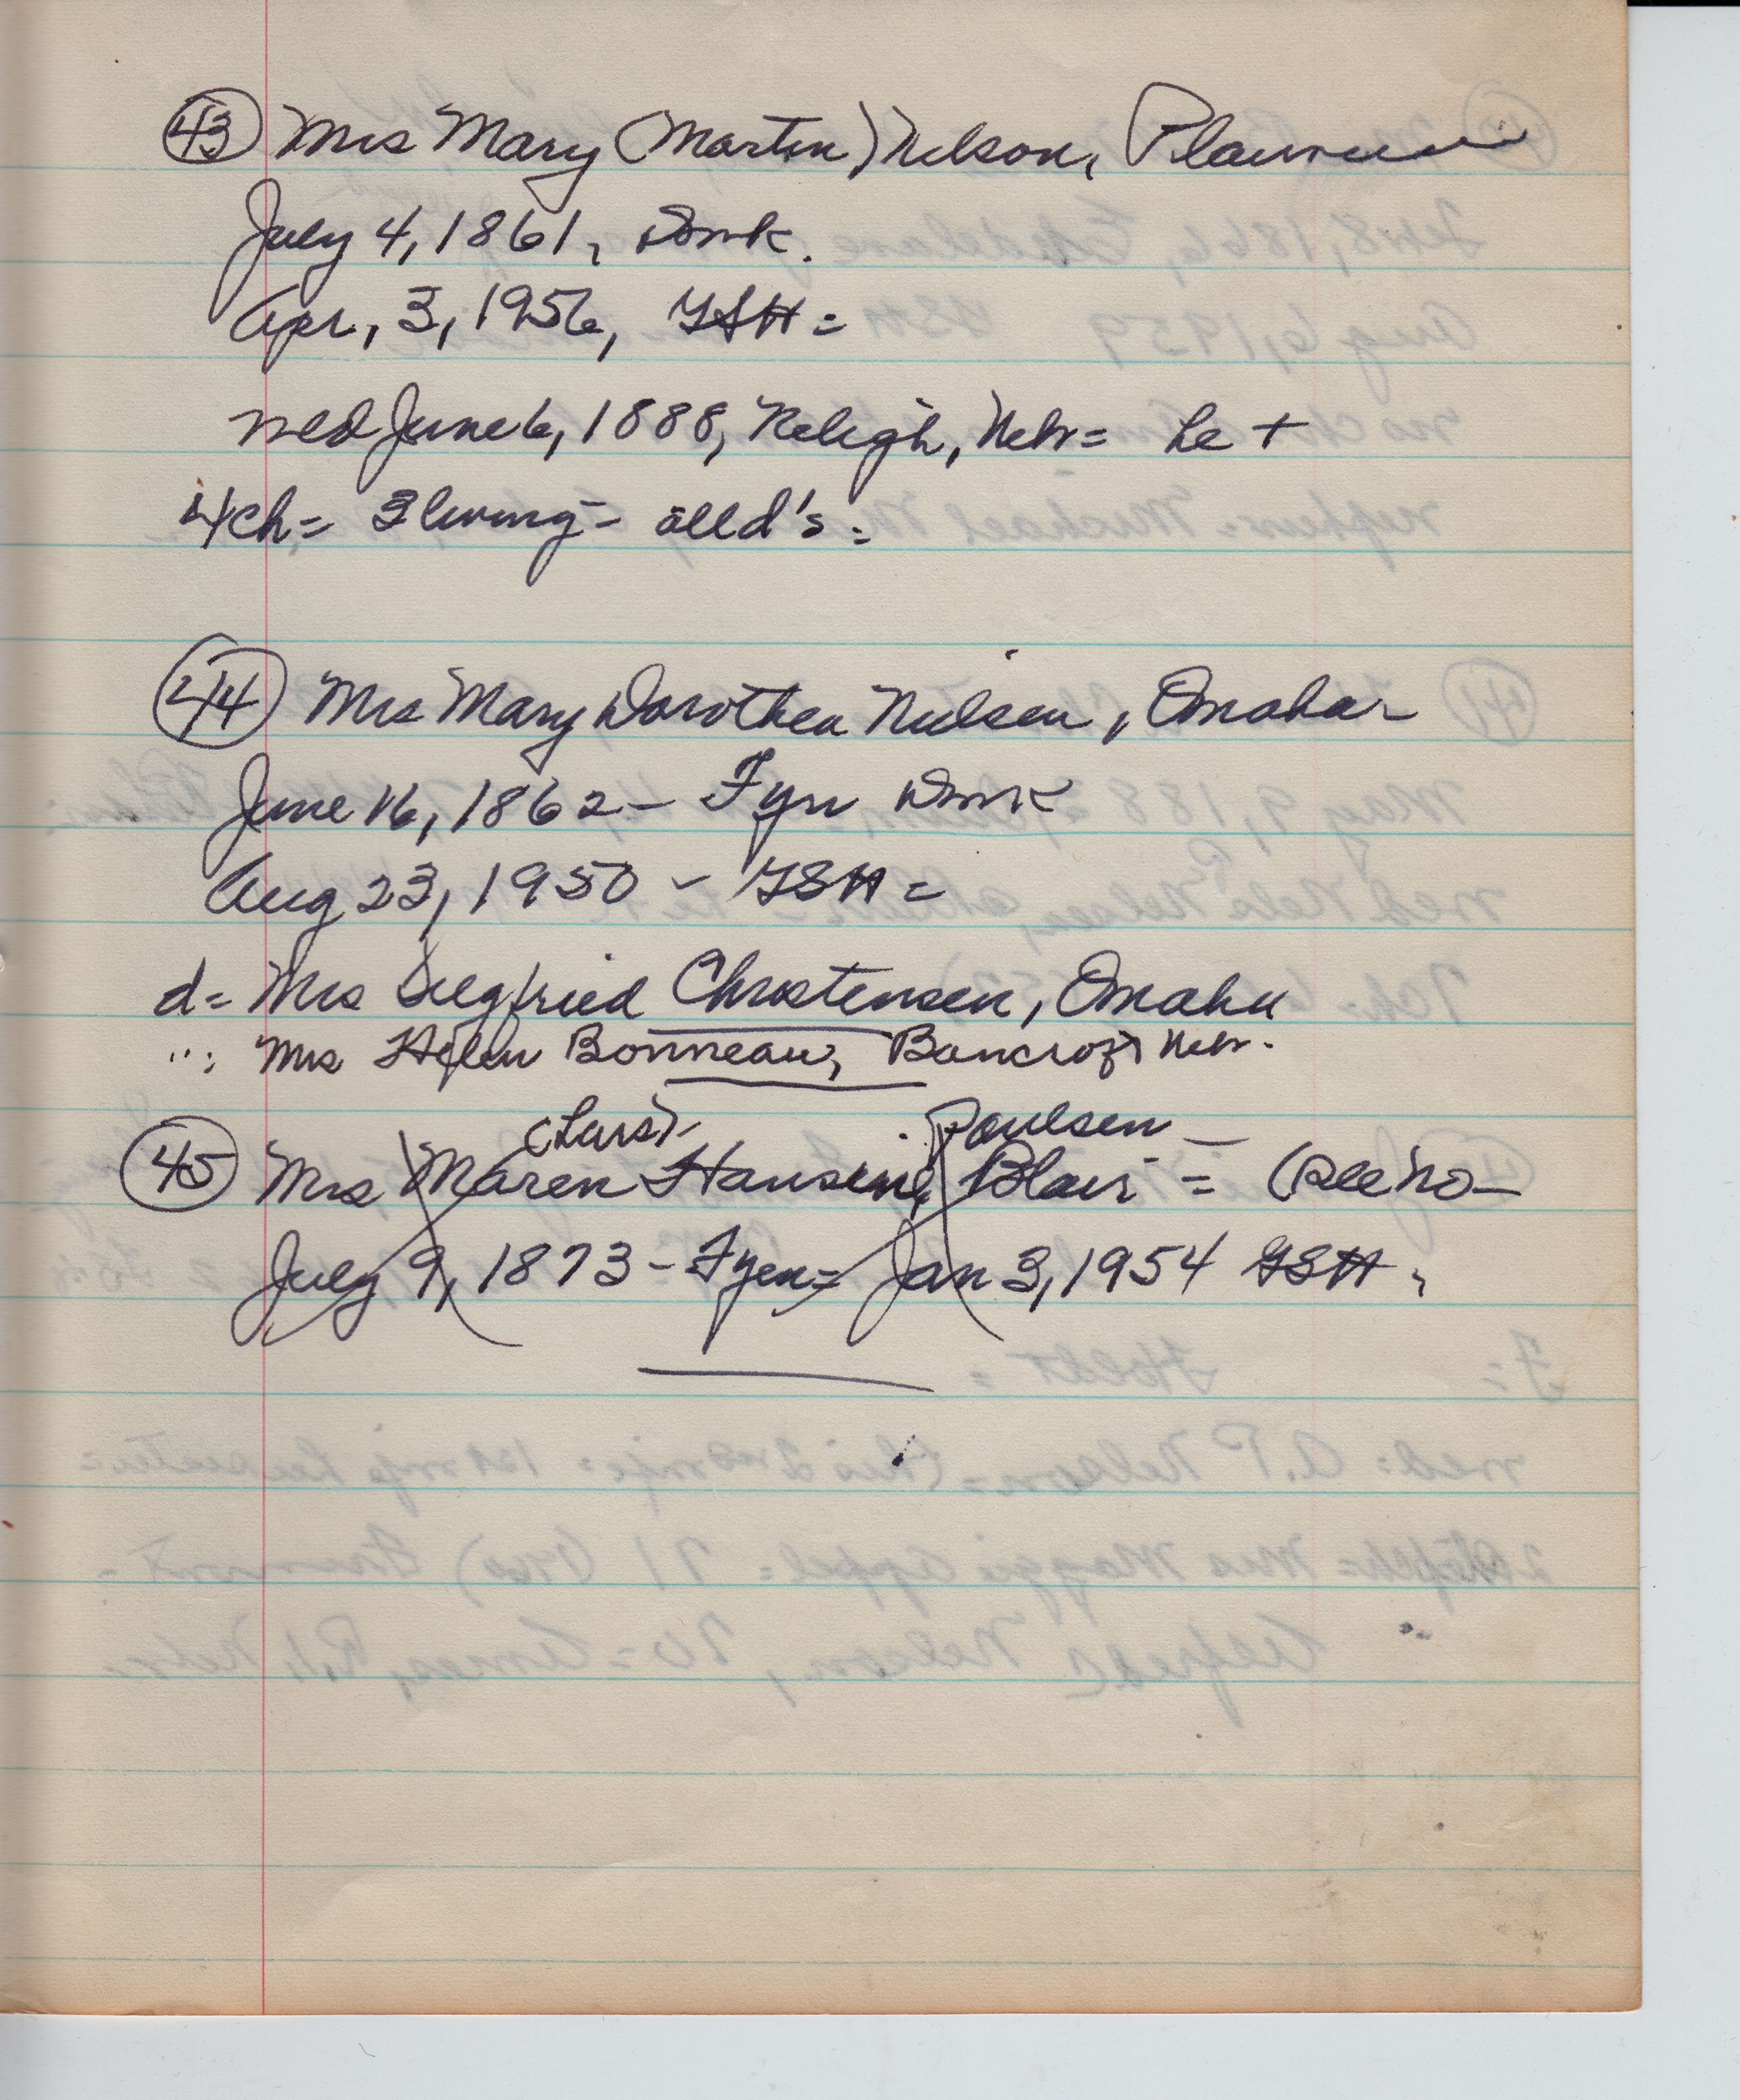 (43) Mrs Mary (Martin) Nelson,
July 4, 1861, Dmk.
Apr, 3, 1956, GSH =
med June 6, 1888, Neligh, Nebr = he +
4 ch = 3 living = all d's =
(44) Mrs Mary Dorothea Nielsen, Omaha -
June 16, 1862 - Fyn Dmk
Aug 23, 1950 - GSH =
d = Mrs Siegfried Christensen, Omaha
" : Mrs Helen Bonneau, Bancroft Nebr.
(Lars) Poulsen -
(45) Mrs Maren Hansine, Blair = (see no -
July 9, 1873 - Fyen = Jan 3, 1954 GSH,